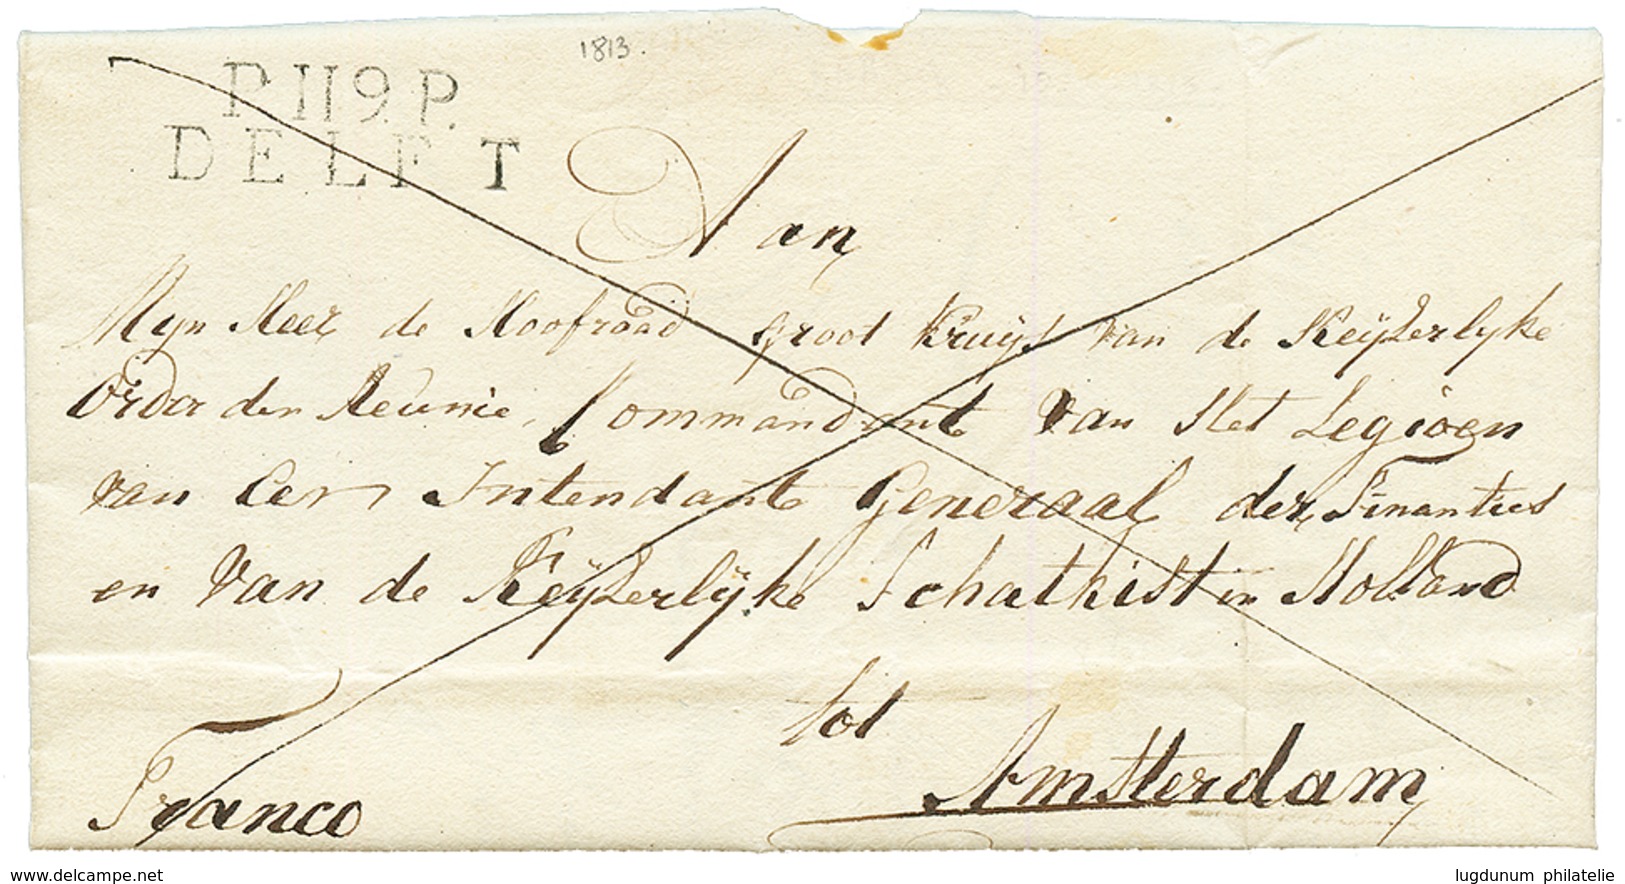 1813.
P.119.P.
DELFT
Aan
Mijn Heer de Hoofraad Groot Kruijs van de Keijzerlyke
Order der Reunie, Commandant van Het Legioen
van Eer, Intendant Generaal der Finanties
en van de Keijzerlijke Schatkist in Holland
tot
Amsterdam
Franco
delcampe.net
lugdunum philatelie